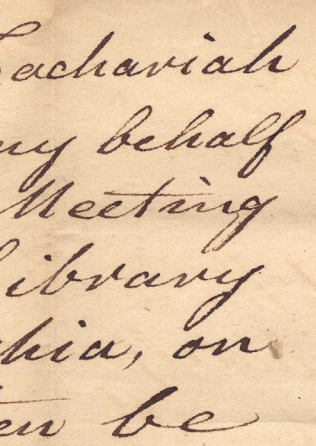 Zachariah
my behalf
Meeting
Library
phia, on
ten be